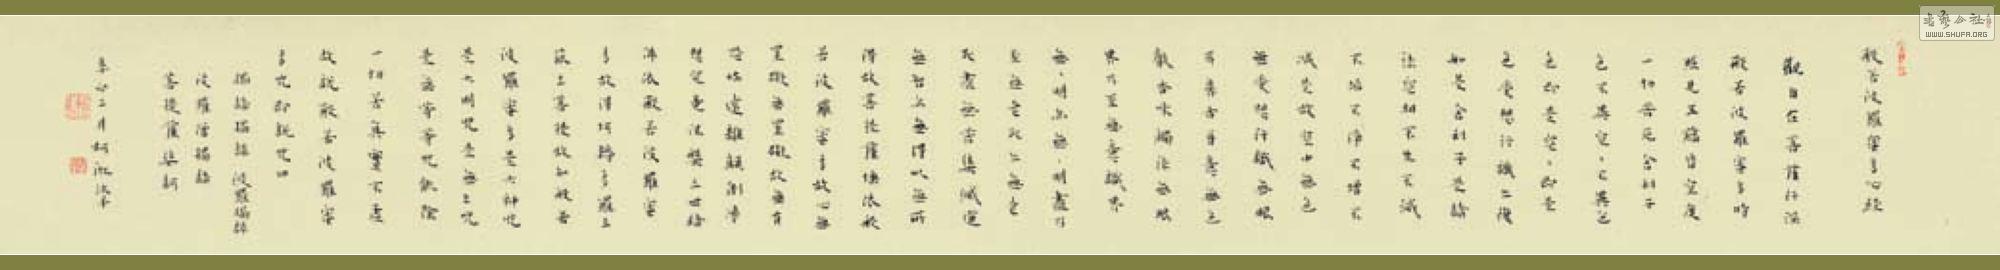 般若波羅蜜多心経
觀自在菩薩行深
般若波羅蜜多時
照見五蘊皆空度
一切苦厄舍利子
色不異空〻不異色
色即是空〻即是
色受想行識亦復
如是舍利子是諸
法空相不生不滅
不垢不淨不增不
減是故空中無色
無受想行識無眼
耳鼻舌身意無色
聲香味觸法無眼
界乃至無意識界
無〻明亦無〻明盡乃
至無老死亦無老
死盡無苦集滅道
無智亦無得以無所
得故菩提薩埵依般
若波羅蜜多故心無
罣礙無罣礙故無有
恐怖遠離顛倒夢
想究竟涅槃三世諸
佛依般若波羅蜜
多故得阿耨多羅三
藐三菩提故知般若
波羅蜜多是大神咒
是大明咒是無上咒
是無等等咒能除
一切苦真實不虛
故說般若波羅蜜
多咒即說咒曰
揭諦揭諦 波羅揭諦
波羅僧揭諦
菩提薩婆訶
WWW.SHUFA.ORG